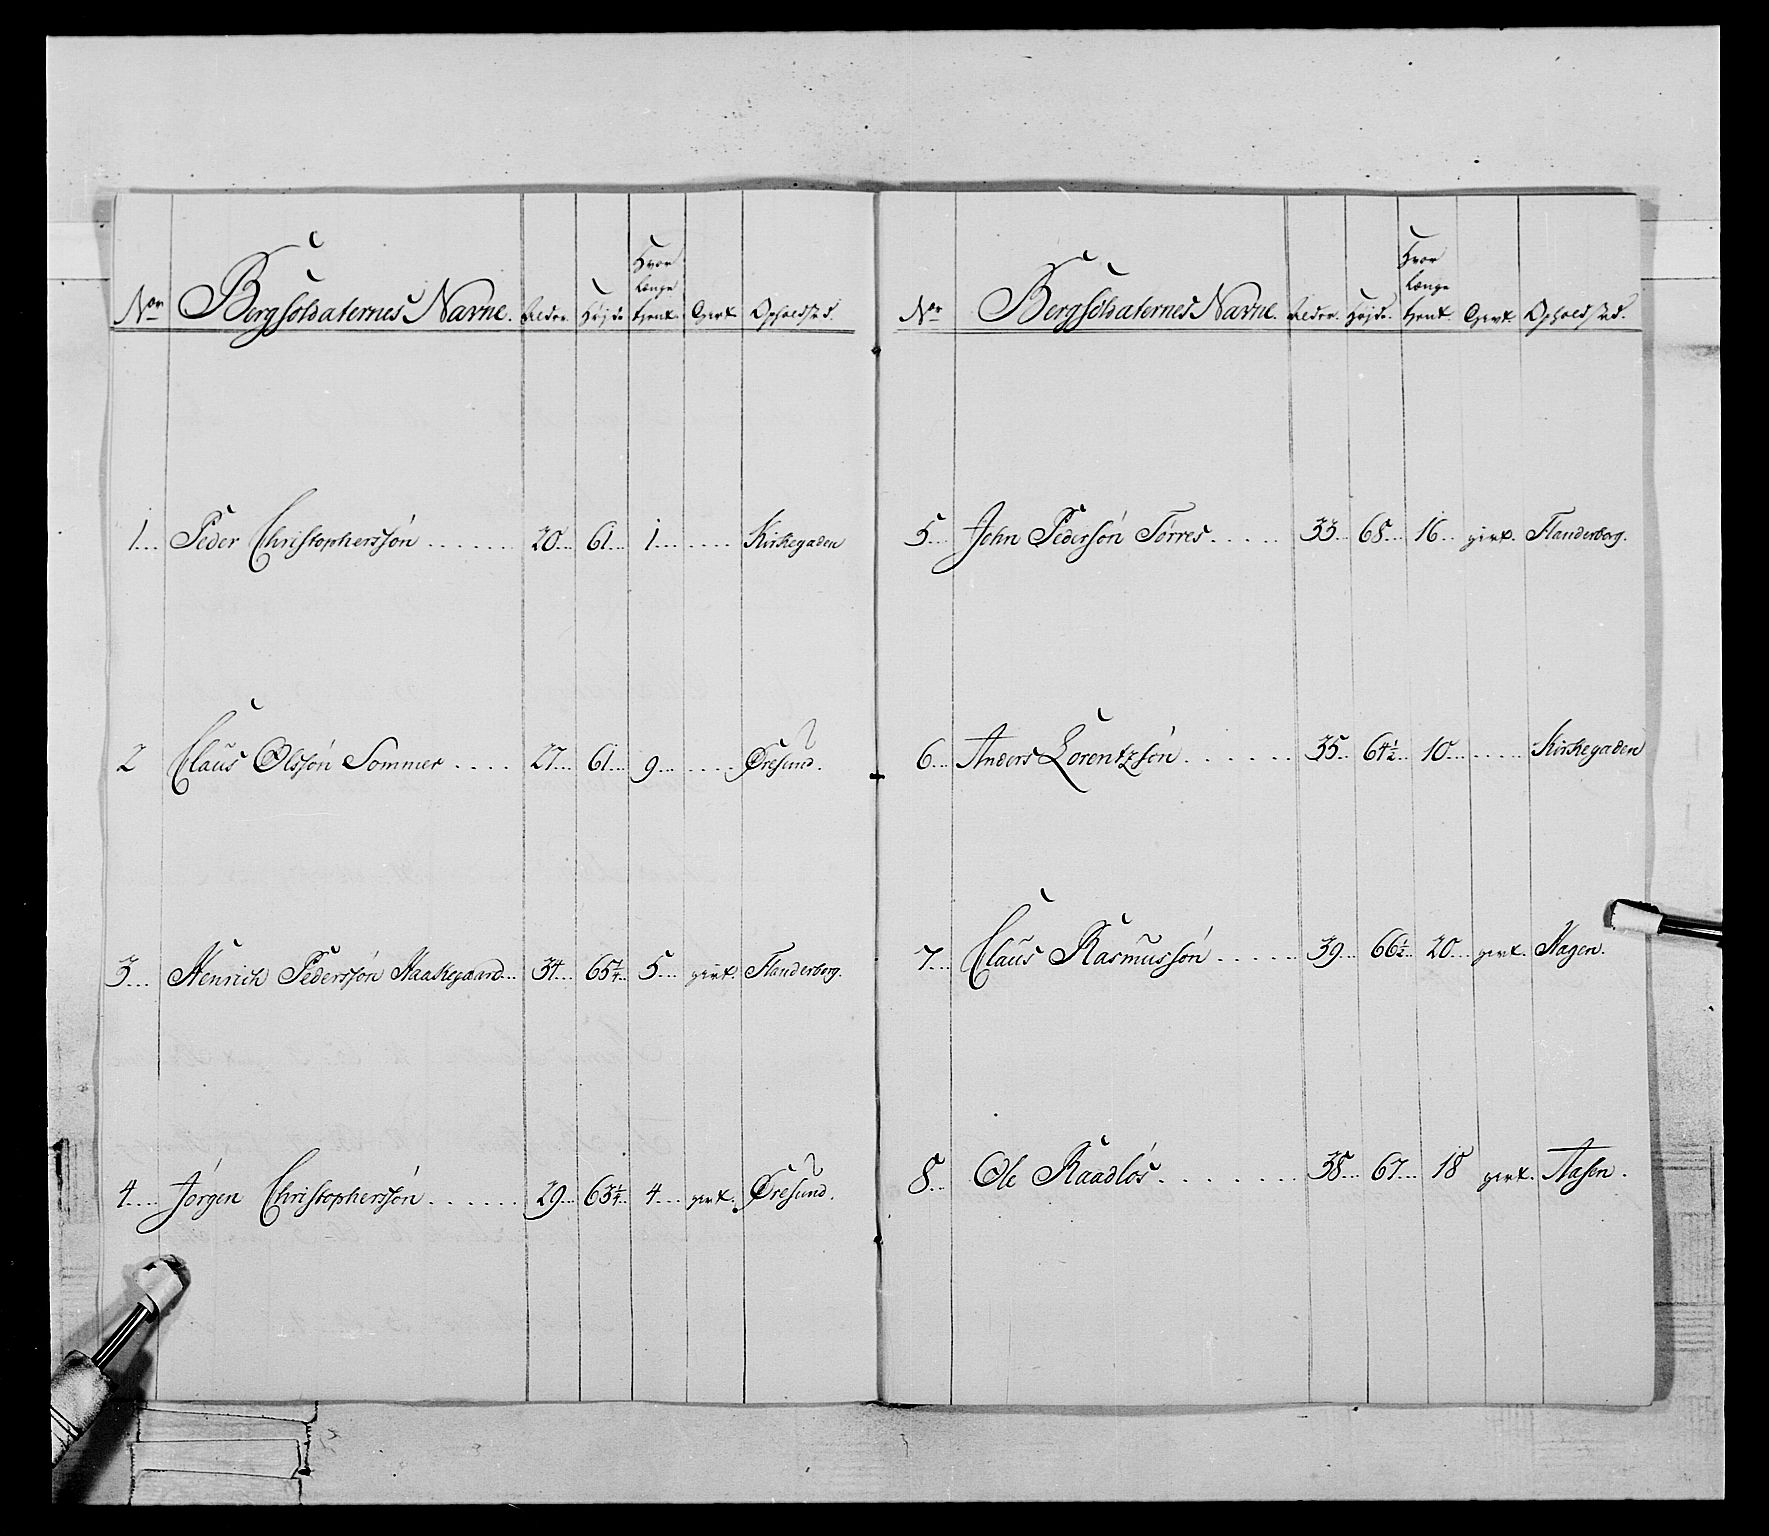 Nor Bergsoldaternes Navne. Alder. Højde Hvor længe tjent. Givt. Opholdsted.
1... Peder Christophersøn ....... 20... 61... 1... .... Kirkegaden
2 Claus Olssøn Sommer .... 27... 61... 9... .... Øresund.
3... Henrich Pederssøn Haaskegaard... 34... 65¼... 5... givt. Flanderborg.
4.... Jørgen Christopherssøn ...... 29... 63¼... 4... givt. Øresund.
Nor Bergsoldaternes Navne. Alder. Højde. Hvor længe tjent. Givt. Opholdsted.
5... John Pedersøn Tørres ..... 33... 68... 16... givt. Flanderborg.
6... Anders Lorentzsøn ...... 35... 64½... 10... ..... Kirkegaden
7... Claus Rasmussøn ..... 39... 66½... 20... givt. Hagen.
8... Ole Raadløs ....... 38... 67... 18 givt. Aasen.